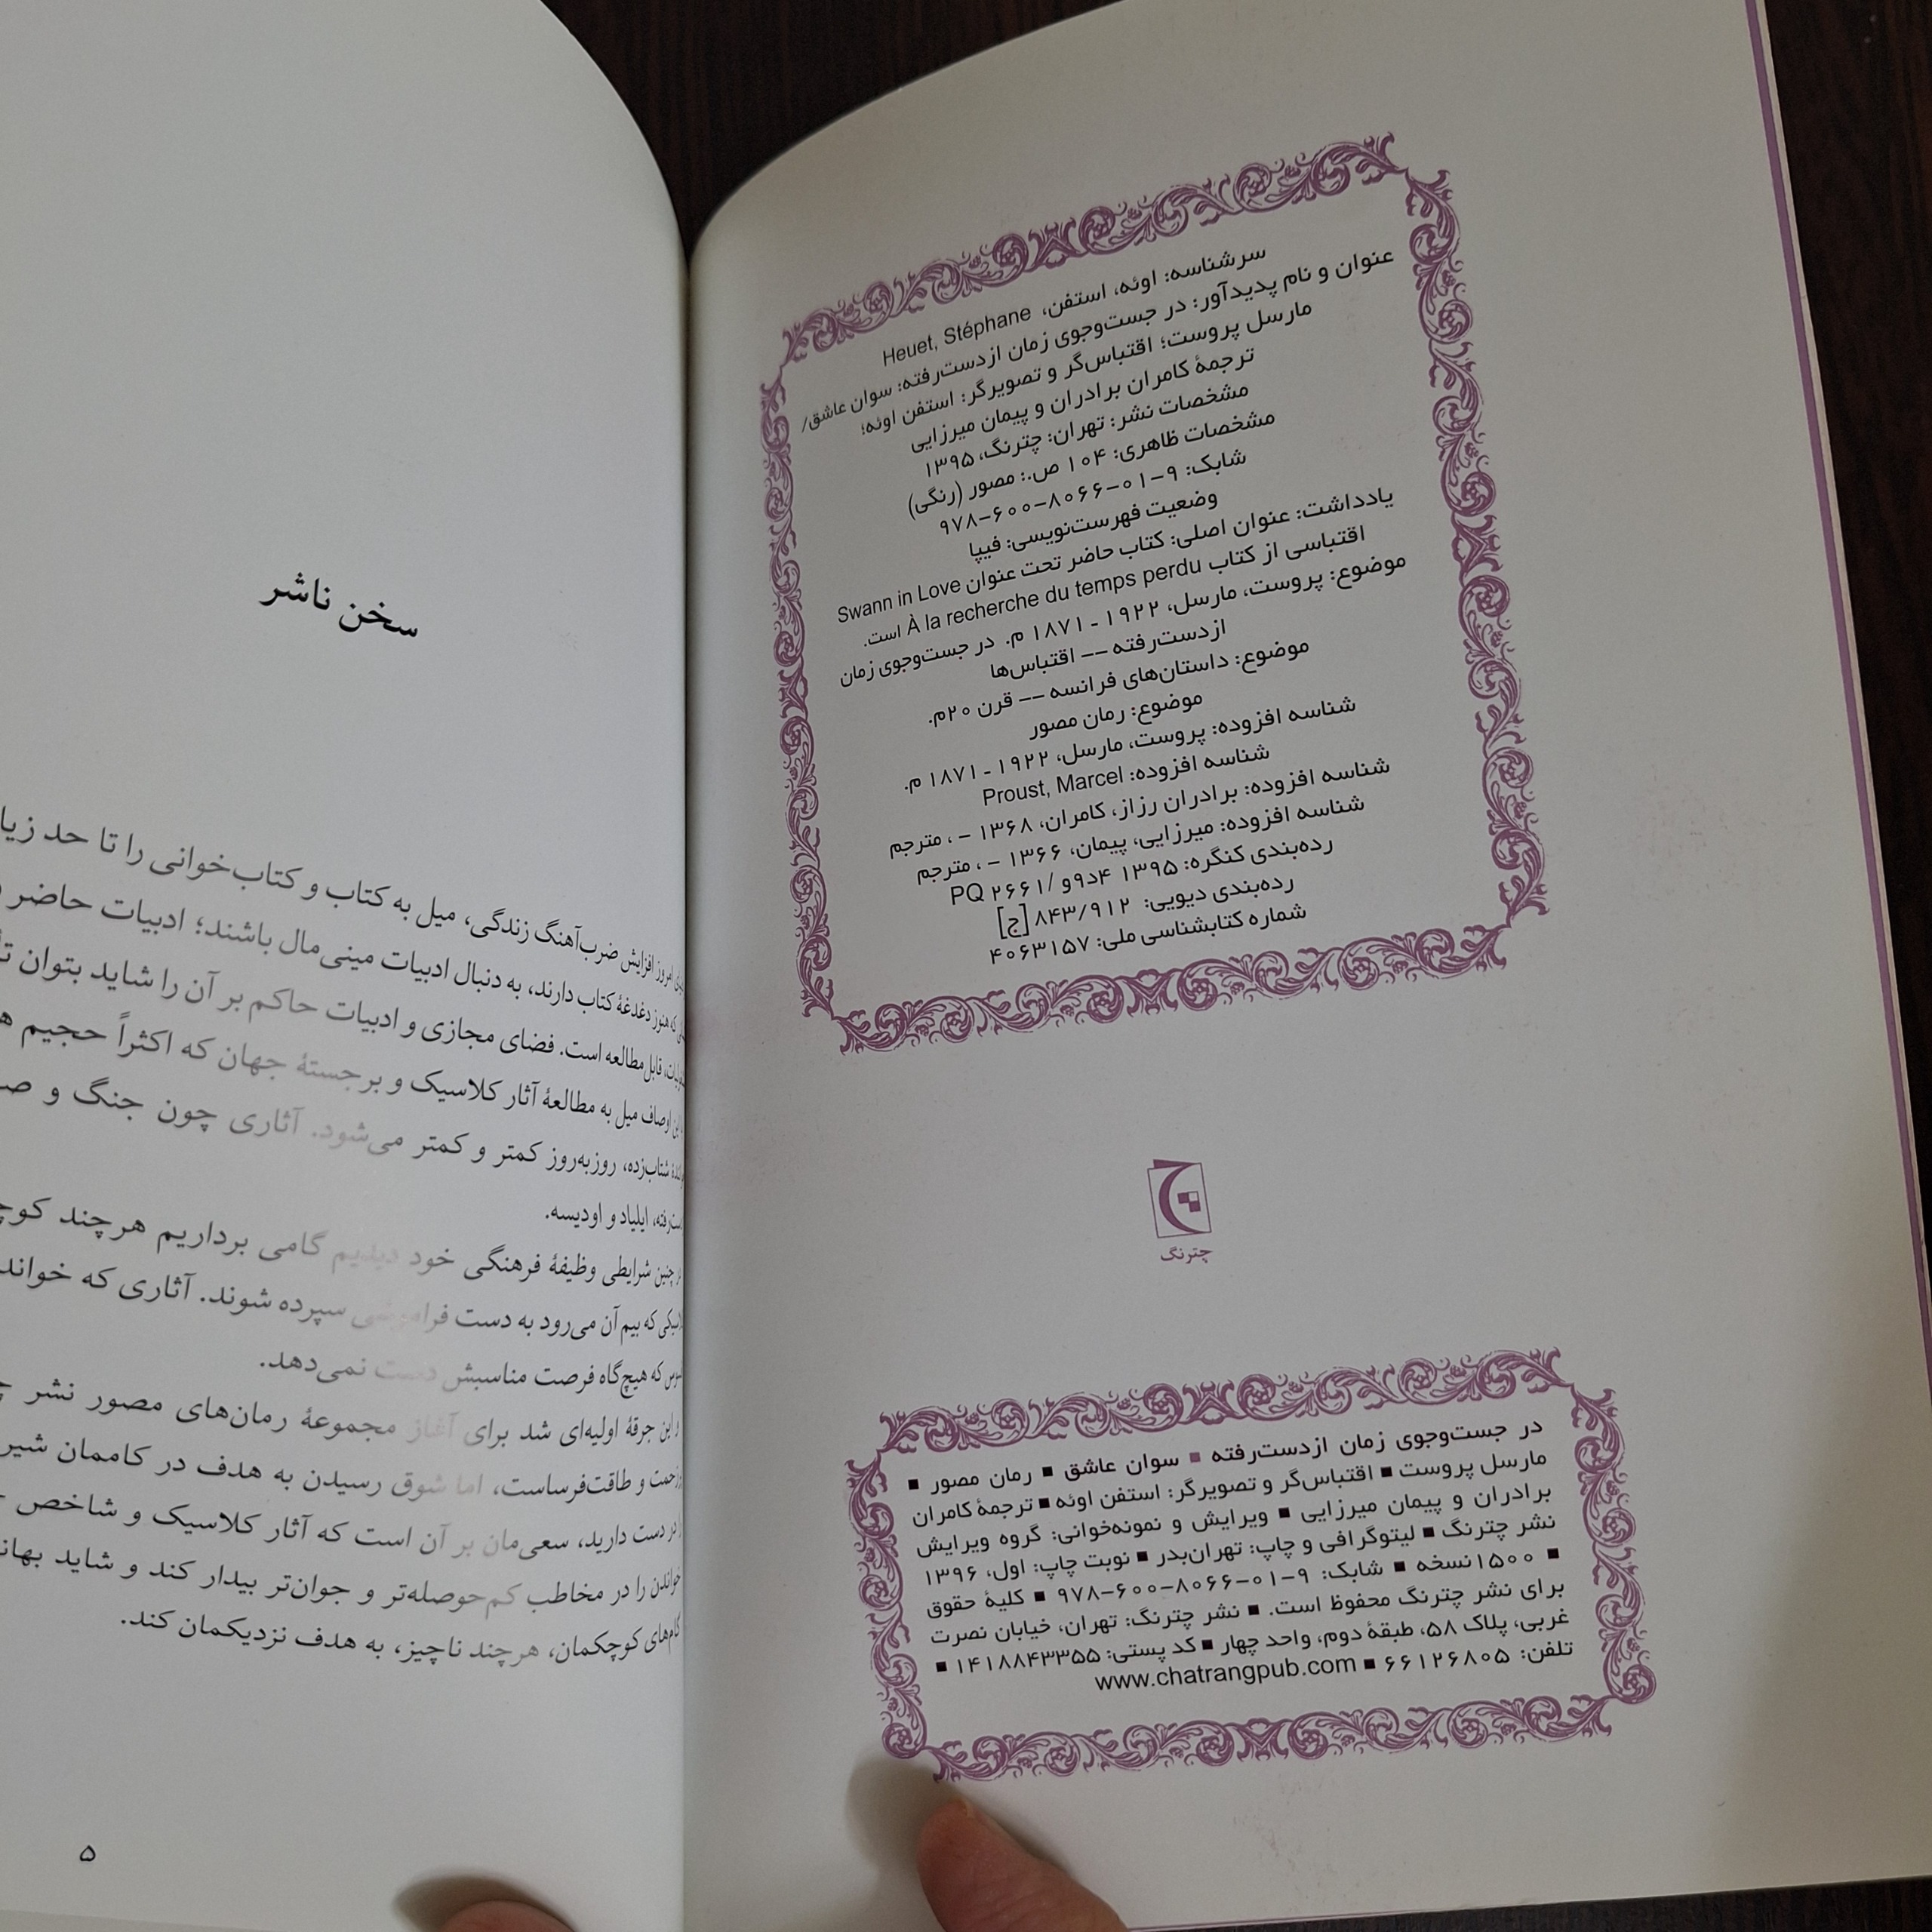 سرشناسه: اوئه، استفن، Heuet, Stéphane
عنوان و نام پدیدآور: در جست‌وجوی زمان ازدست‌رفته: سوان عاشق/
مارسل پروست؛ اقتباس‌گر و تصویرگر: استفن اوئه؛
ترجمهٔ کامران برادران و پیمان میرزایی
مشخصات نشر: تهران: چترنگ، ۱۳۹۵
مشخصات ظاهری: ۱۰۴ ص.: مصور (رنگی)
شابک: ۹-۰۱-۸۰۶۶-۶۰۰-۹۷۸
وضعیت فهرست‌نویسی: فیپا
یادداشت: عنوان اصلی: کتاب حاضر تحت عنوان Swann in Love
اقتباسی از کتاب À la recherche du temps perdu است.
موضوع: پروست، مارسل، ۱۹۲۲ - ۱۸۷۱ م. در جست‌وجوی زمان
ازدست‌رفته -- اقتباس‌ها
موضوع: داستان‌های فرانسه -- قرن ۲۰م.
موضوع: رمان مصور
شناسه افزوده: پروست، مارسل، ۱۹۲۲ - ۱۸۷۱ م.
شناسه افزوده: Proust, Marcel
شناسه افزوده: برادران رزاز، کامران، ۱۳۶۸ - ، مترجم
شناسه افزوده: میرزایی، پیمان، ۱۳۶۶ - ، مترجم
رده‌بندی کنگره: ۱۳۹۵ ۴د۹و /۲۶۶۱ PQ
رده‌بندی دیویی: ۸۴۳/۹۱۲ [ج]
شماره کتابشناسی ملی: ۴۰۶۳۱۵۷
چترنگ
در جست‌وجوی زمان ازدست‌رفته ■ سوان عاشق ■ رمان مصور ■
مارسل پروست ■ اقتباس‌گر و تصویرگر: استفن اوئه ■ ترجمهٔ کامران
برادران و پیمان میرزایی ■ ویرایش و نمونه‌خوانی: گروه ویرایش
نشر چترنگ ■ لیتوگرافی و چاپ: تهران‌بدر ■ نوبت چاپ: اول، ۱۳۹۶
■ ۱۵۰۰نسخه ■ شابک: ۹-۰۱-۸۰۶۶-۶۰۰-۹۷۸ ■ کلیهٔ حقوق
برای نشر چترنگ محفوظ است. ■ نشر چترنگ: تهران، خیابان نصرت
غربی، پلاک ۵۸، طبقهٔ دوم، واحد چهار ■ کد پستی: ۱۴۱۸۸۴۳۳۵۵ ■
تلفن: ۶۶۱۲۶۸۰۵ ■ www.chatrangpub.com
سخن ناشر
امروز افزایش ضرب‌آهنگ زندگی، میل به کتاب و کتاب‌خوانی را تا حد
که هنوز دغدغهٔ کتاب دارند، به دنبال ادبیات مینی‌مال باشند؛ ادبیات حاضر
قابل مطالعه است. فضای مجازی و ادبیات حاکم بر آن را شاید بتوان
اوصاف میل به مطالعهٔ آثار کلاسیک و برجستهٔ جهان که اکثراً حجیم
شتاب‌زده، روزبه‌روز کمتر و کمتر می‌شود. آثاری چون جنگ و
ایلیاد و اودیسه.
چنین شرایطی وظیفهٔ فرهنگی خود دیدیم گامی برداریم هرچند
که بیم آن می‌رود به دست فراموشی سپرده شوند. آثاری که
که هیچ‌گاه فرصت مناسبش دست نمی‌دهد.
و این جرقهٔ اولیه‌ای شد برای آغاز مجموعهٔ رمان‌های مصور نشر
و طاقت‌فرساست، اما شوق رسیدن به هدف در کاممان
در دست دارید، سعی‌مان بر آن است که آثار کلاسیک و شاخص
خواندن را در مخاطب کم‌حوصله‌تر و جوان‌تر بیدار کند و شاید
گام‌های کوچکمان، هرچند ناچیز، به هدف نزدیکمان کند.
۵